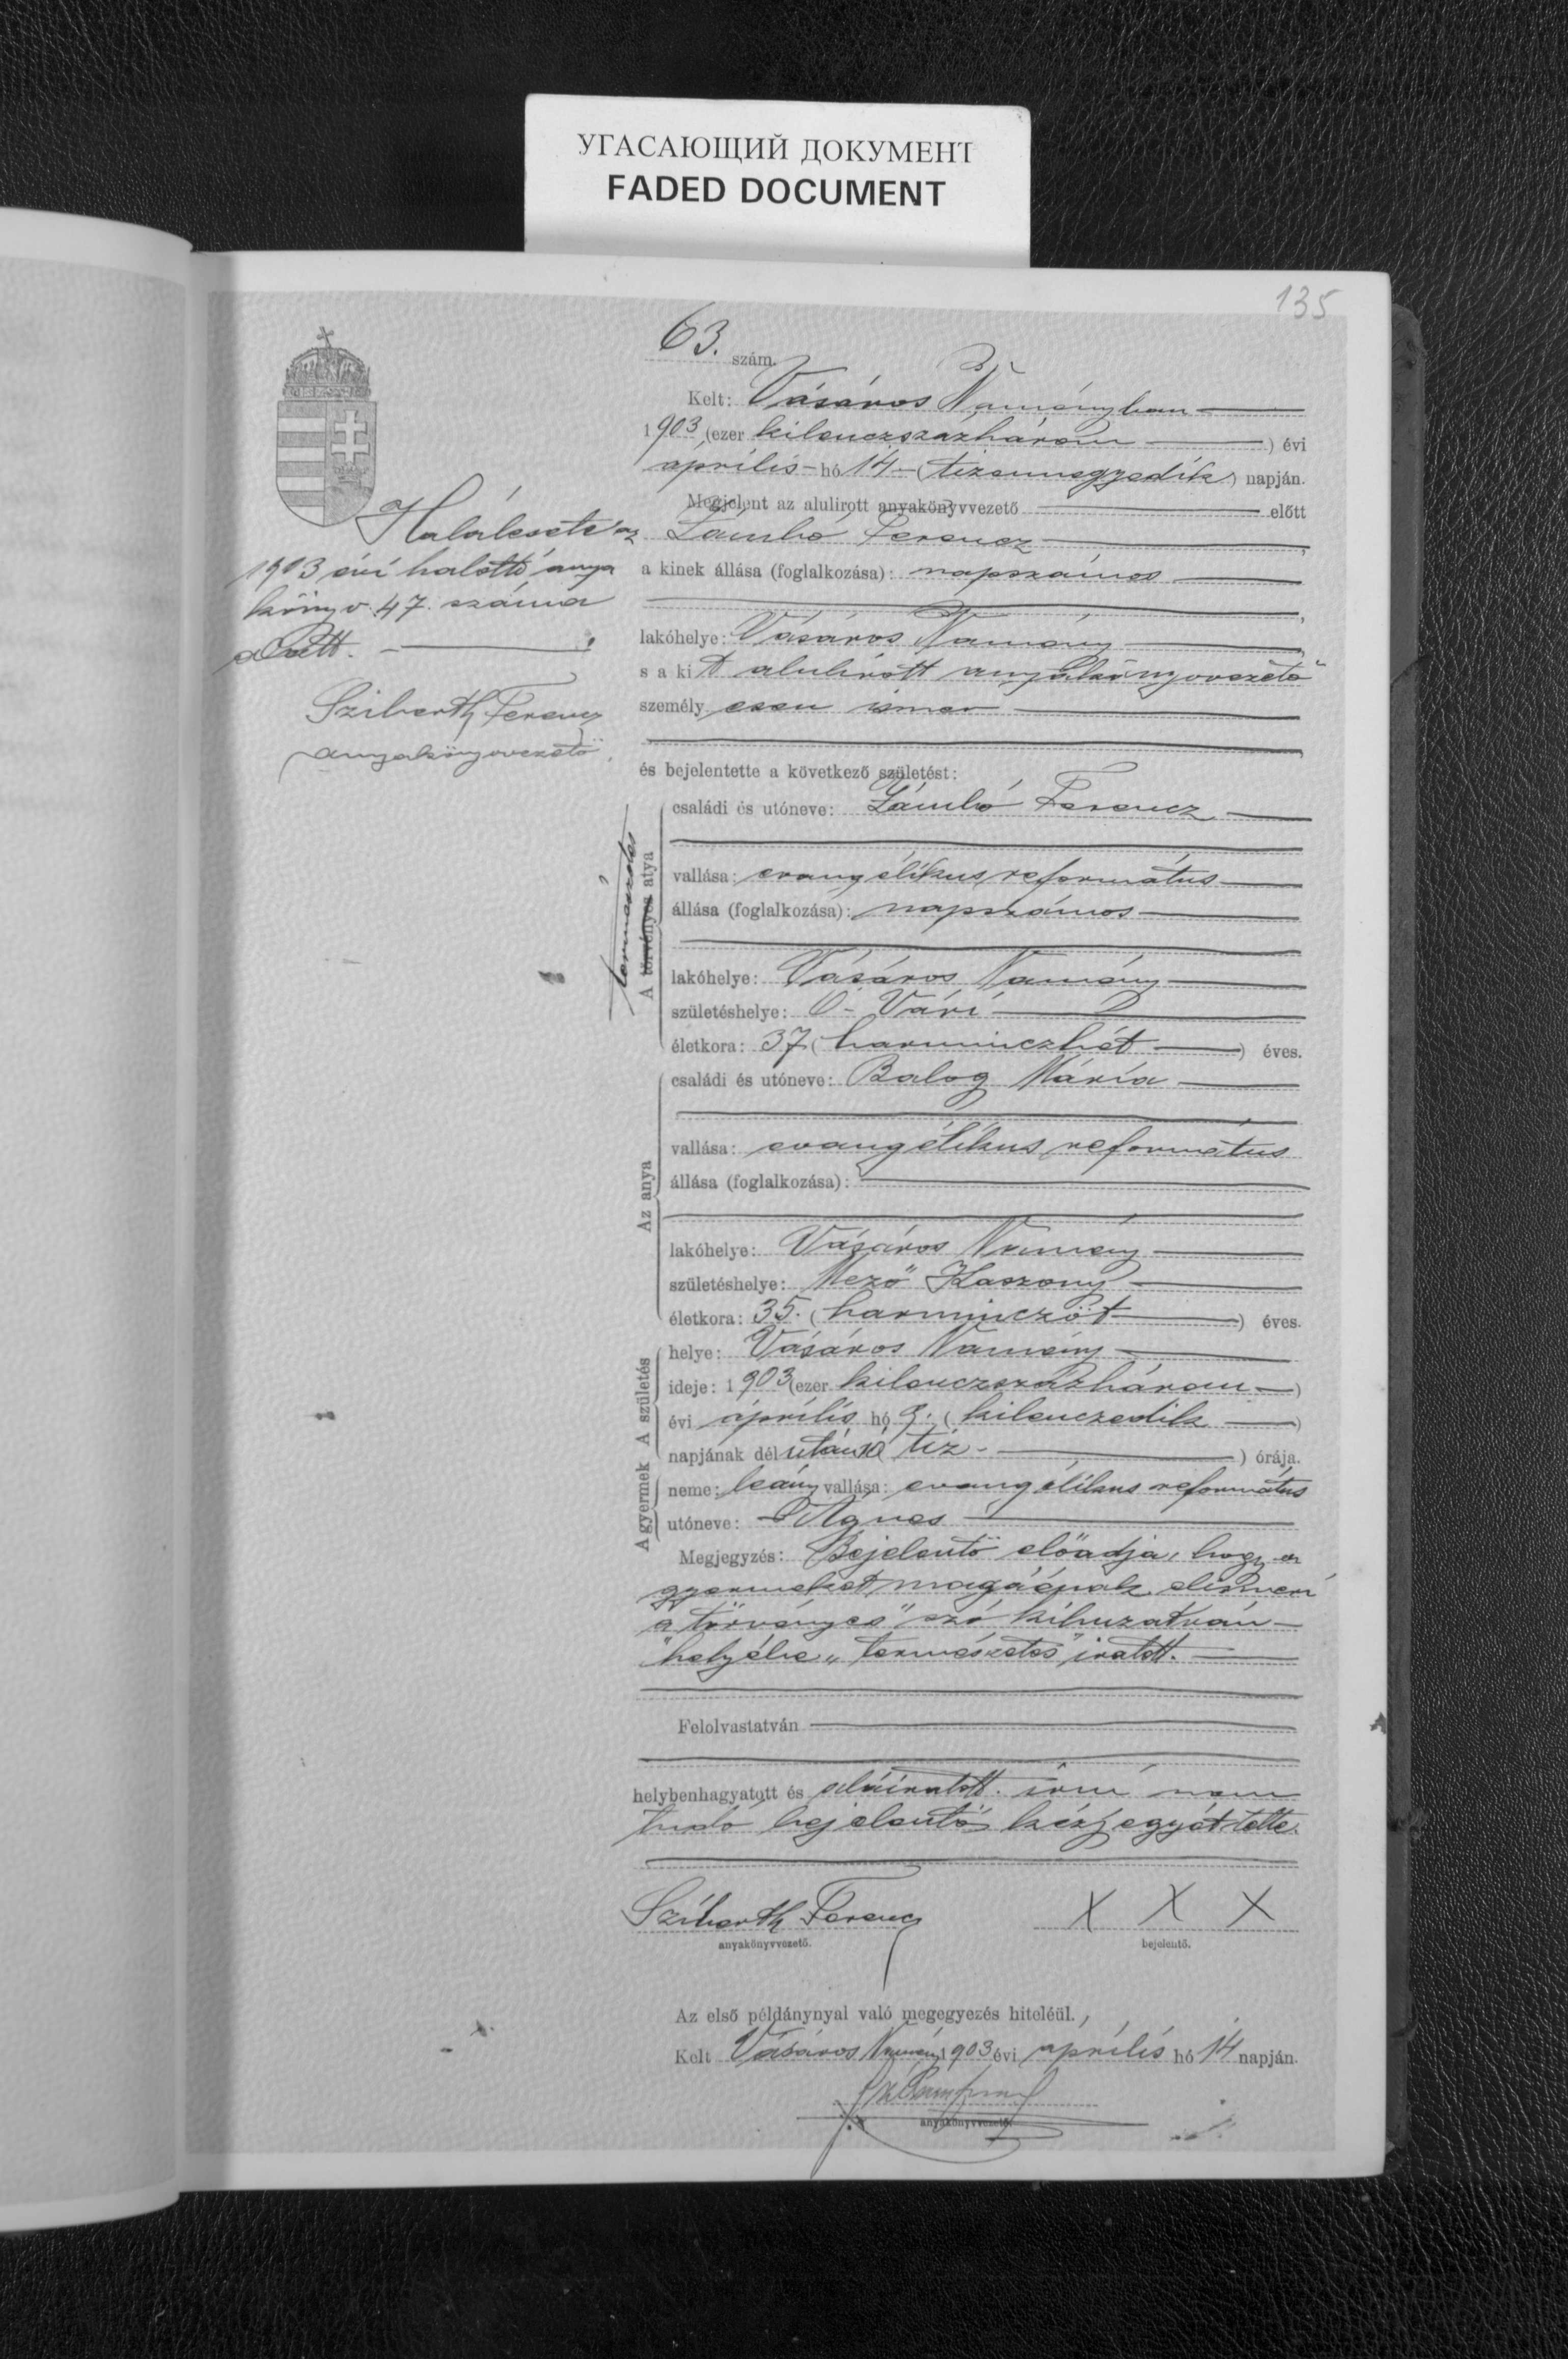 УГАСАЮЩИЙ ДОКУМЕНТ
FADED DOCUMENT
135
63. szám.
Kelt: Vásáros Naményban
1903 (ezer kilenczszázhárom) évi
április hó 14 (tizennegyedik) napján.
Megjelent az alulirott anyakönyvvezető előtt
Lámbó Ferencz,
a kinek állása (foglalkozása): napszámos
lakóhelye: Vásáros Namény,
s a kit alulírott anyakönyvvezető
személyesen ismer
és bejelentette a következő születést:
Halálesete az
1903 évi halotti anya
könyv 47. száma
alatt.
Sziberth Ferencz
anyakönyvvezető.
természetes
A törvényes atya
családi és utóneve: Lámbó Ferencz
vallása: evangélikus református
állása (foglalkozása): napszámos
lakóhelye: Vásáros Namény
születéshelye: Vári
életkora: 37 (harminczhét) éves.
Az anya
családi és utóneve: Balog Mária
vallása: evangélikus református
állása (foglalkozása):
lakóhelye: Vásáros Namény
születéshelye: Mező Kaszony
életkora: 35. (harminczöt) éves.
A születés
helye: Vásáros Namény
ideje: 1903 (ezer kilenczszázhárom)
évi április hó 9. (kilenczedik)
napjának dél utáni 10 (tíz) órája.
A gyermek
neme: leány vallása: evangélikus református
utóneve: Ágnes
Megjegyzés: Bejelentő előadja, hogy a
gyermeket magáénak elismeri
a „törvényes" szó kihuzatván
helyébe „természetes" iratott.
Felolvastatván
helybenhagyatott és aláiratott. irni nem
tudó bejelentő kézjegyét tette.
Sziberth Ferencz X X X
anyakönyvvezető. bejelentő.
Az első példánynyal való megegyezés hiteléül.
Kelt Vásáros Namény 1903 évi április hó 14 napján.
anyakönyvvezető.